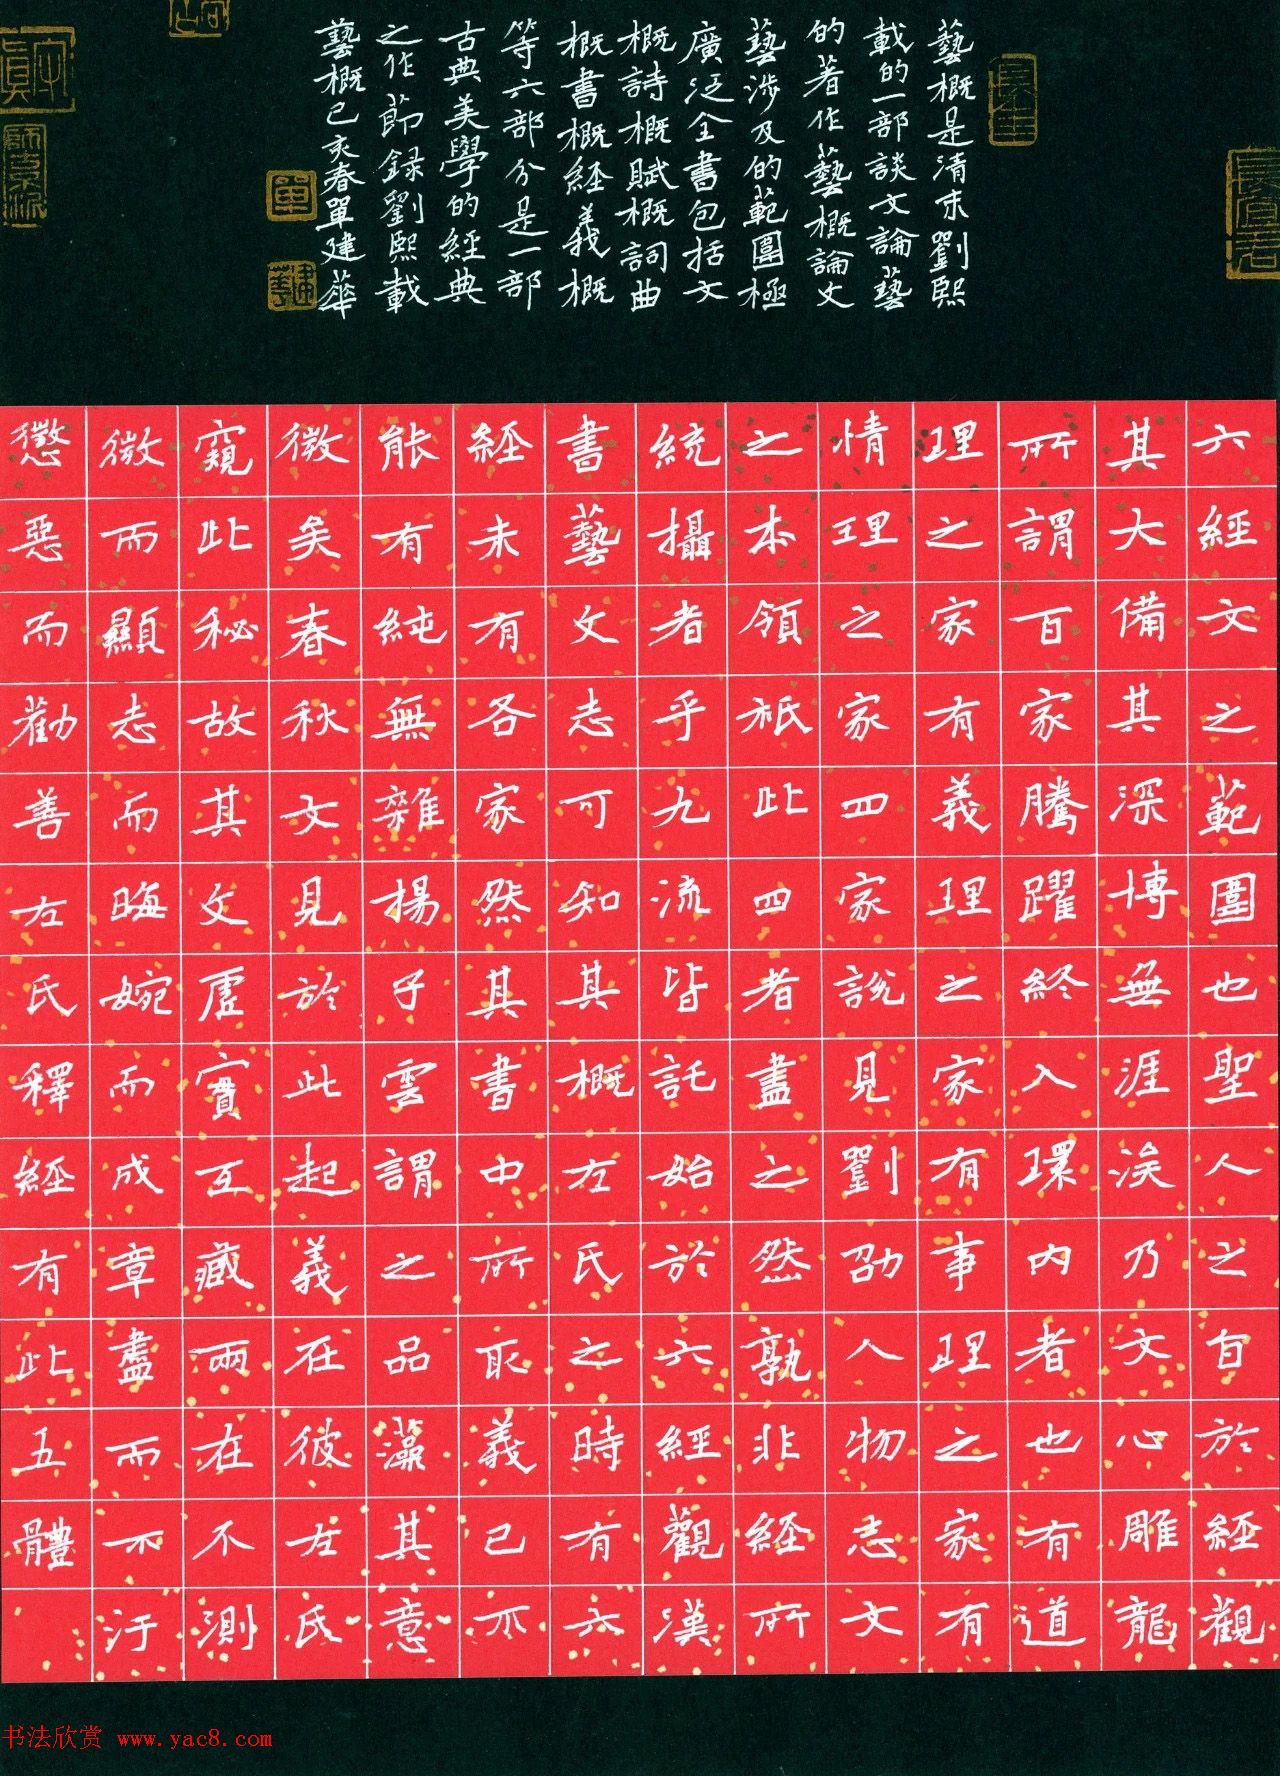 藝概是清末劉熙
載的一部談文論藝
的著作藝概論文
藝涉及的範圍極
廣泛全書包括文
概詩概賦概詞曲
概書概經義概
等六部分是一部
古典美學的經典
之作節錄劉熙載
藝概己亥春單建華
單
建華
六經文之範圍也聖人之旨於經觀
其大備其深博無涯涘乃文心雕龍
所謂百家騰躍終入環內者也有道
理之家有義理之家有事理之家有
情理之家四家說見劉劭人物志文
之本領祇此四者盡之然孰非經所
統攝者乎九流皆託始於六經觀漢
書藝文志可知其概左氏之時有六
經未有各家然其書中所取義已不
能有純無雜揚子雲謂之品藻其意
微矣春秋文見於此起義在彼左氏
窺此秘故其文虛實互藏兩在不測
微而顯志而晦婉而成章盡而不汙
懲惡而勸善左氏釋經有此五體
书法欣赏 www.yac8.com